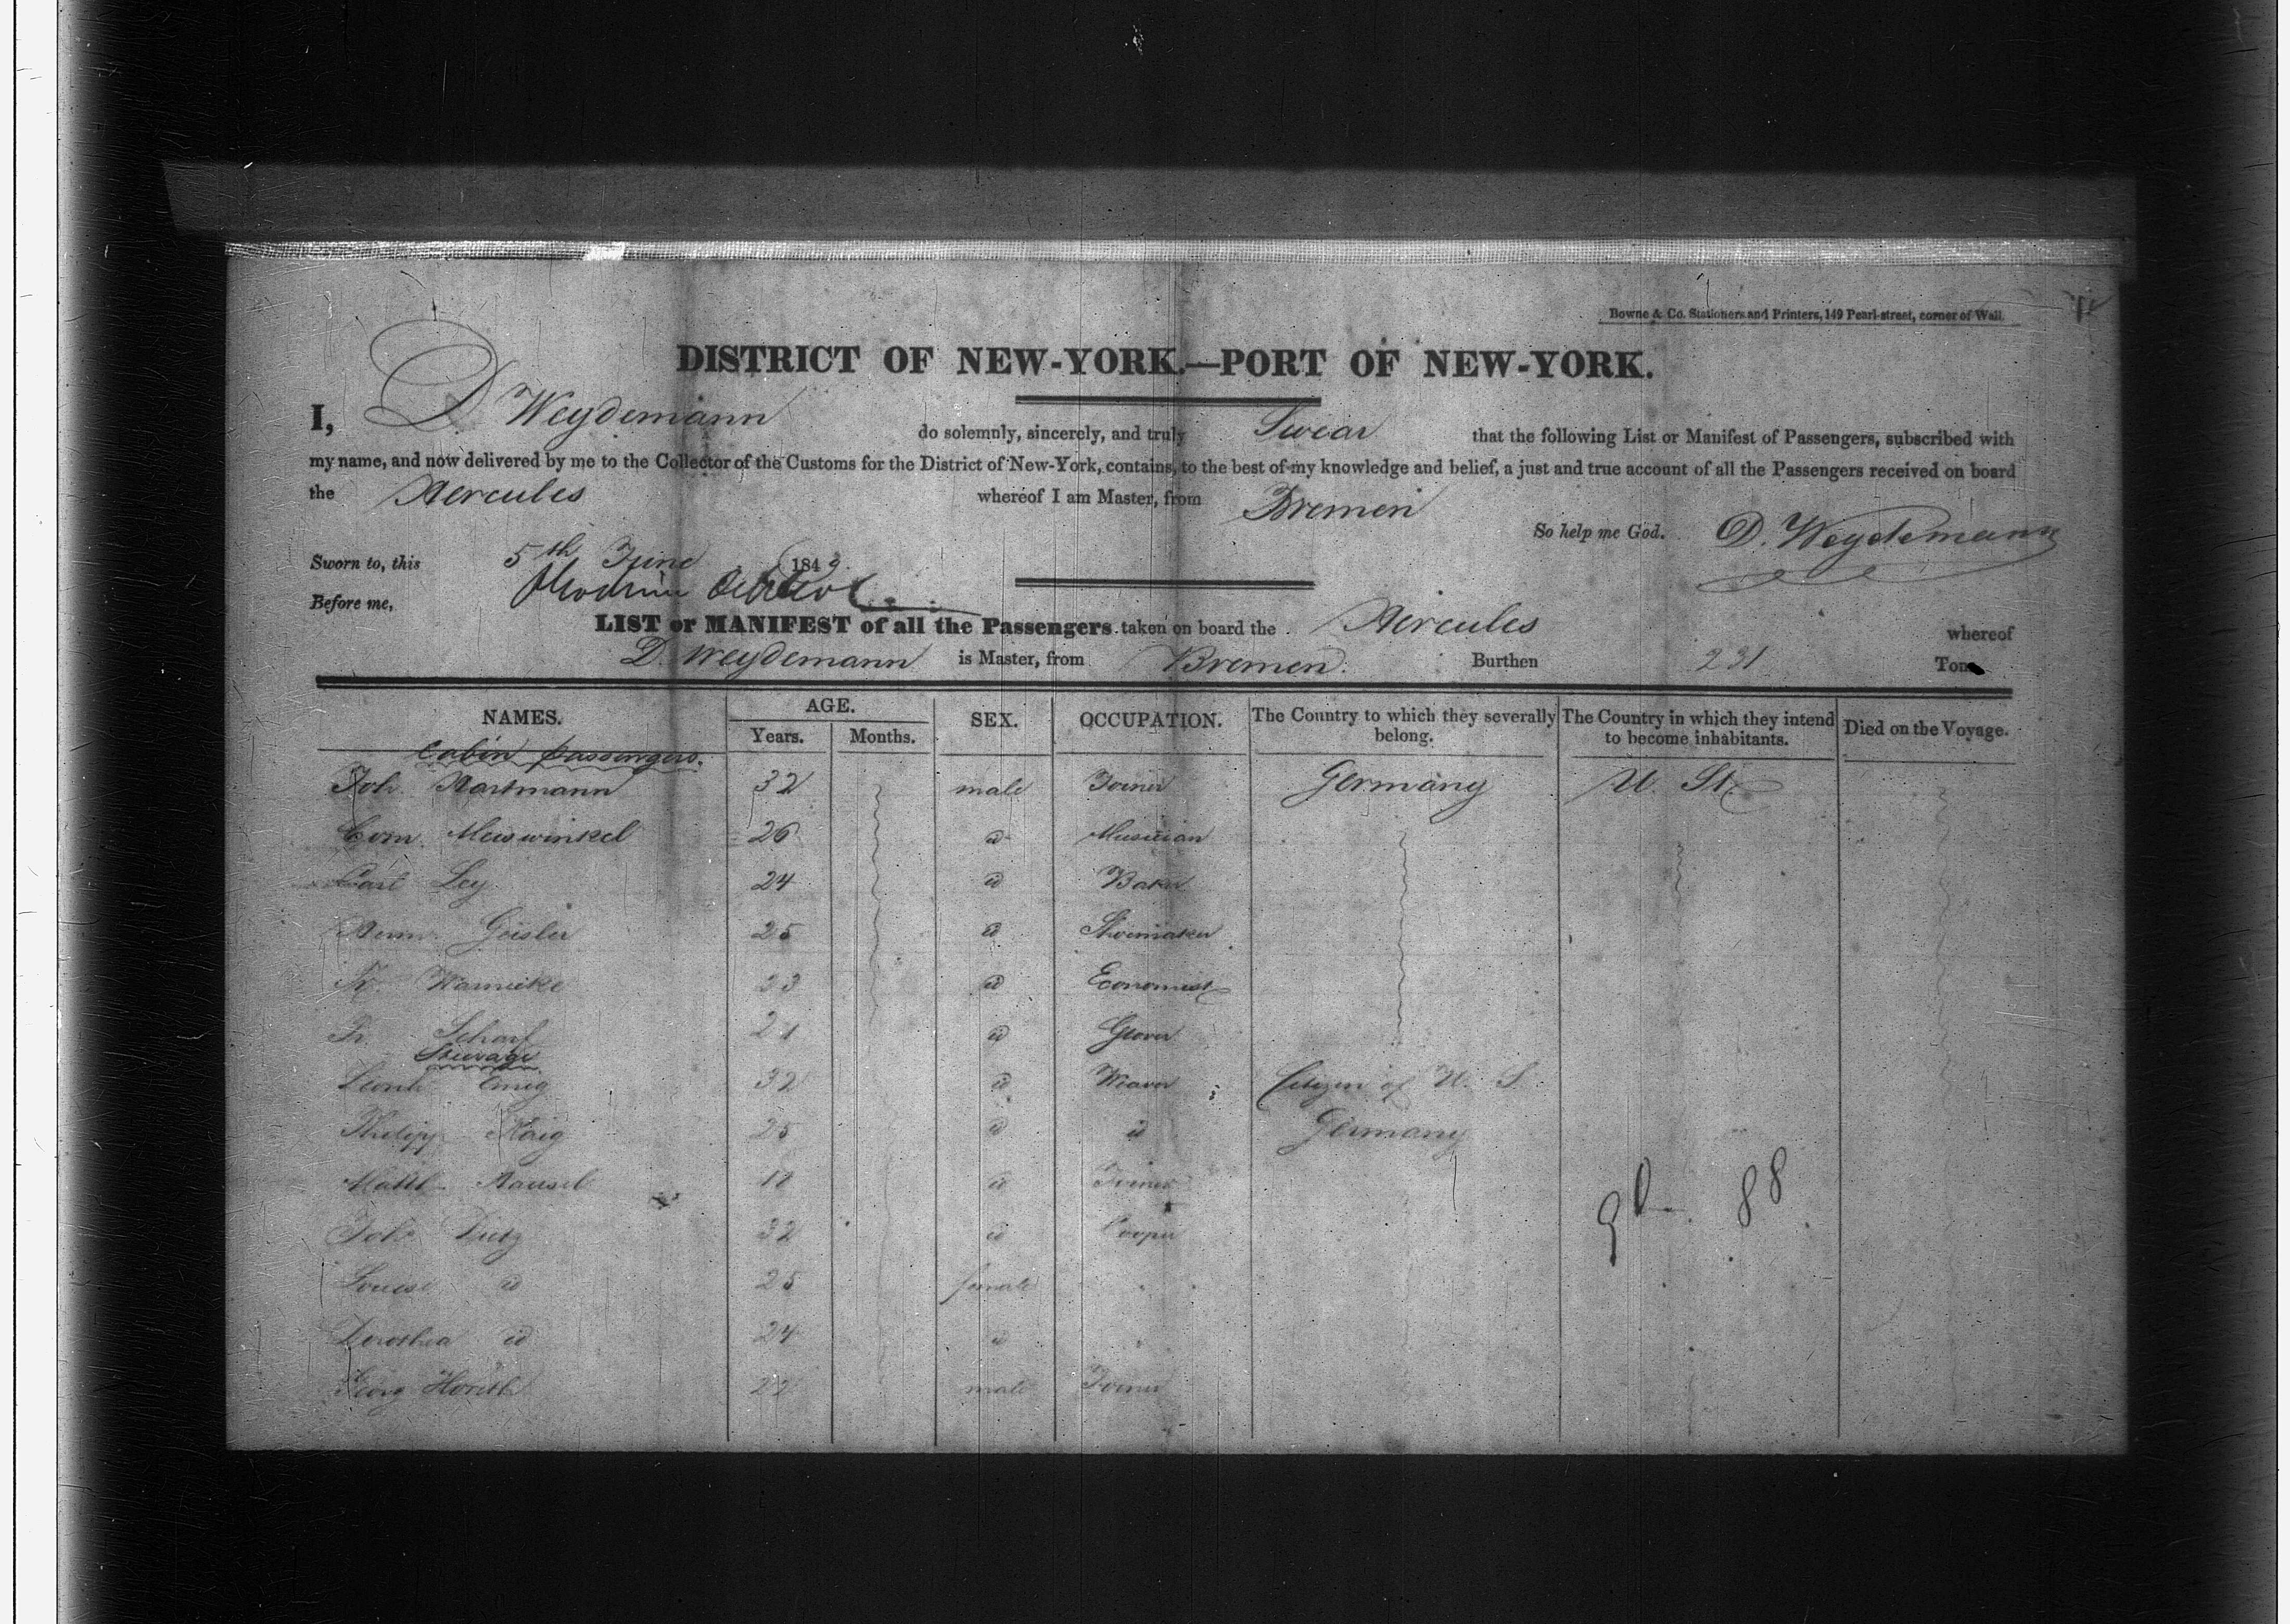 Bowne & Co. Stationers and Printers, 149 Pearl-street, corner of Wall.
DISTRICT OF NEW-YORK.—PORT OF NEW-YORK.
I, D Weydemann do solemnly, sincerely, and truly Swear that the following List or Manifest of Passengers, subscribed with
my name, and now delivered by me to the Collector of the Customs for the District of New-York, contains, to the best of my knowledge and belief, a just and true account of all the Passengers received on board
the Hercules whereof I am Master, from Bremen
So help me God. D. Weydemann
Sworn to, this 5th June 1849.
Before me,
LIST or MANIFEST of all the Passengers taken on board the Hercules whereof
D. Weydemann is Master, from Bremen. Burthen 231 Tons
NAMES. AGE. SEX. OCCUPATION. The Country to which they severally belong. The Country in which they intend to become inhabitants. Died on the Voyage.
Years. Months.
Cabin passengers.
Joh. Hartmann 32 male Joiner Germany U. St.
Corn. Meiswinkel 26 id Musician
Carl Ley 24 id Baker
Herm. Geisler 25 id Shoemaker
Fr. Warneike 23 id Economist
Fr. Scharf 21 id Glover
Steerage
Leonh Emig 32 id Weaver Citizen of U. S.
Philipp 25 id id Germany
Hausel 18 id Joiner
Joh. Dietz 32 id Cooper
Louise id 25 female
Dorothea id 24 id
Georg 22 male Joiner
88